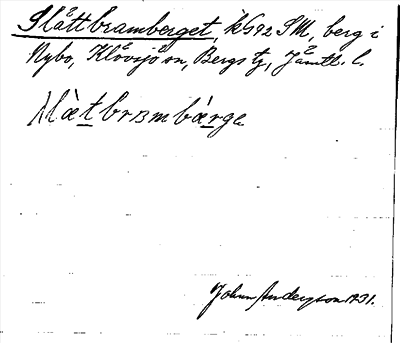 Slåttbramberget, kG92 SM, berg i
Nybo, Klövsjö sn, Bergs tg, Jämtl. l.
Slà̀tbrɜmbárgɛ
Johan Anderson 1931.